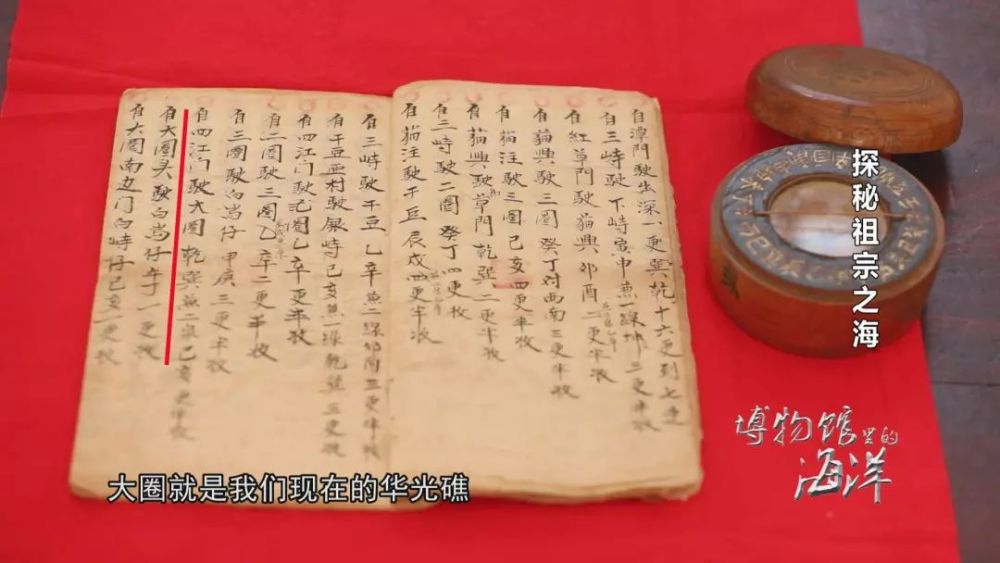 自潭門駛出深一更巽乾十六更到七連
自三峙駛下峙寅申兼一線坤二更半收
自紅草門駛猫興卯酉二更半收
自猫興駛三圈癸丁対西南三更半收
自猫注駛三圈己亥四更半收
自猫興駛草門乾巽二更半收
自三峙駛二圈癸丁四更收
自猫注駛干豆辰戌四更半收
自三峙駛干豆乙辛兼二線卯酉五更半收
自干豆駛銀峙己亥兼一線乾巽三更收
自四江门駛元圈乙辛更半收
自二圈駛三圈乙辛二更半收
自三圈駛白峙仔甲庚三更半收
自四江门駛大圈乾巽兼二線己亥更半收
自大圈头駛白峙仔午一更收
自大圈南边门白峙仔己亥一更收
探秘祖宗之海
博物馆里的
海洋
大圈就是我们现在的华光礁